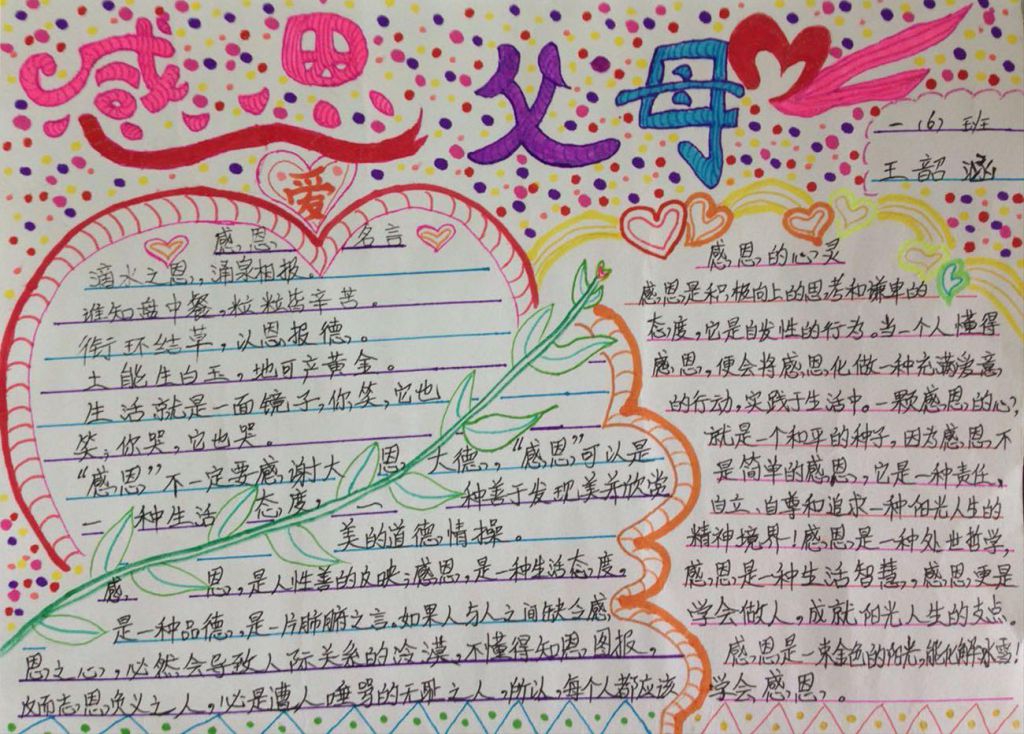 感恩父母
一(6)班
王韶涵
爱
感恩名言
滴水之恩,涌泉相报。
谁知盘中餐,粒粒皆辛苦。
衔环结草,以恩报德。
土能生白玉,地可产黄金。
生活就是一面镜子,你笑,它也
笑;你哭,它也哭。
“感恩”不一定要感谢大恩大德,“感恩”可以是
一种生活态度,一种善于发现美并欣赏
美的道德情操。
感恩,是人性善的反映;感恩,是一种生活态度,
是一种品德,是一片肺腑之言.如果人与人之间缺乏感
恩之心,必然会导致人际关系的冷漠,不懂得知恩图报,
反而忘恩负义之人,必是遭人唾骂的无耻之人,所以,每个人都应该
学会感恩。
感恩的心灵
感恩是积极向上的思考和谦卑的
态度,它是自发性的行为。当一个人懂得
感恩,便会将感恩化做一种充满爱意
的行动,实践于生活中。一颗感恩的心,
就是一个和平的种子,因为感恩不
是简单的感恩,它是一种责任,
自立、自尊和追求一种阳光人生的
精神境界!感恩是一种处世哲学,
感恩是一种生活智慧,感恩更是
学会做人,成就阳光人生的支点。
感恩是一束金色的阳光,能化解冰雪!